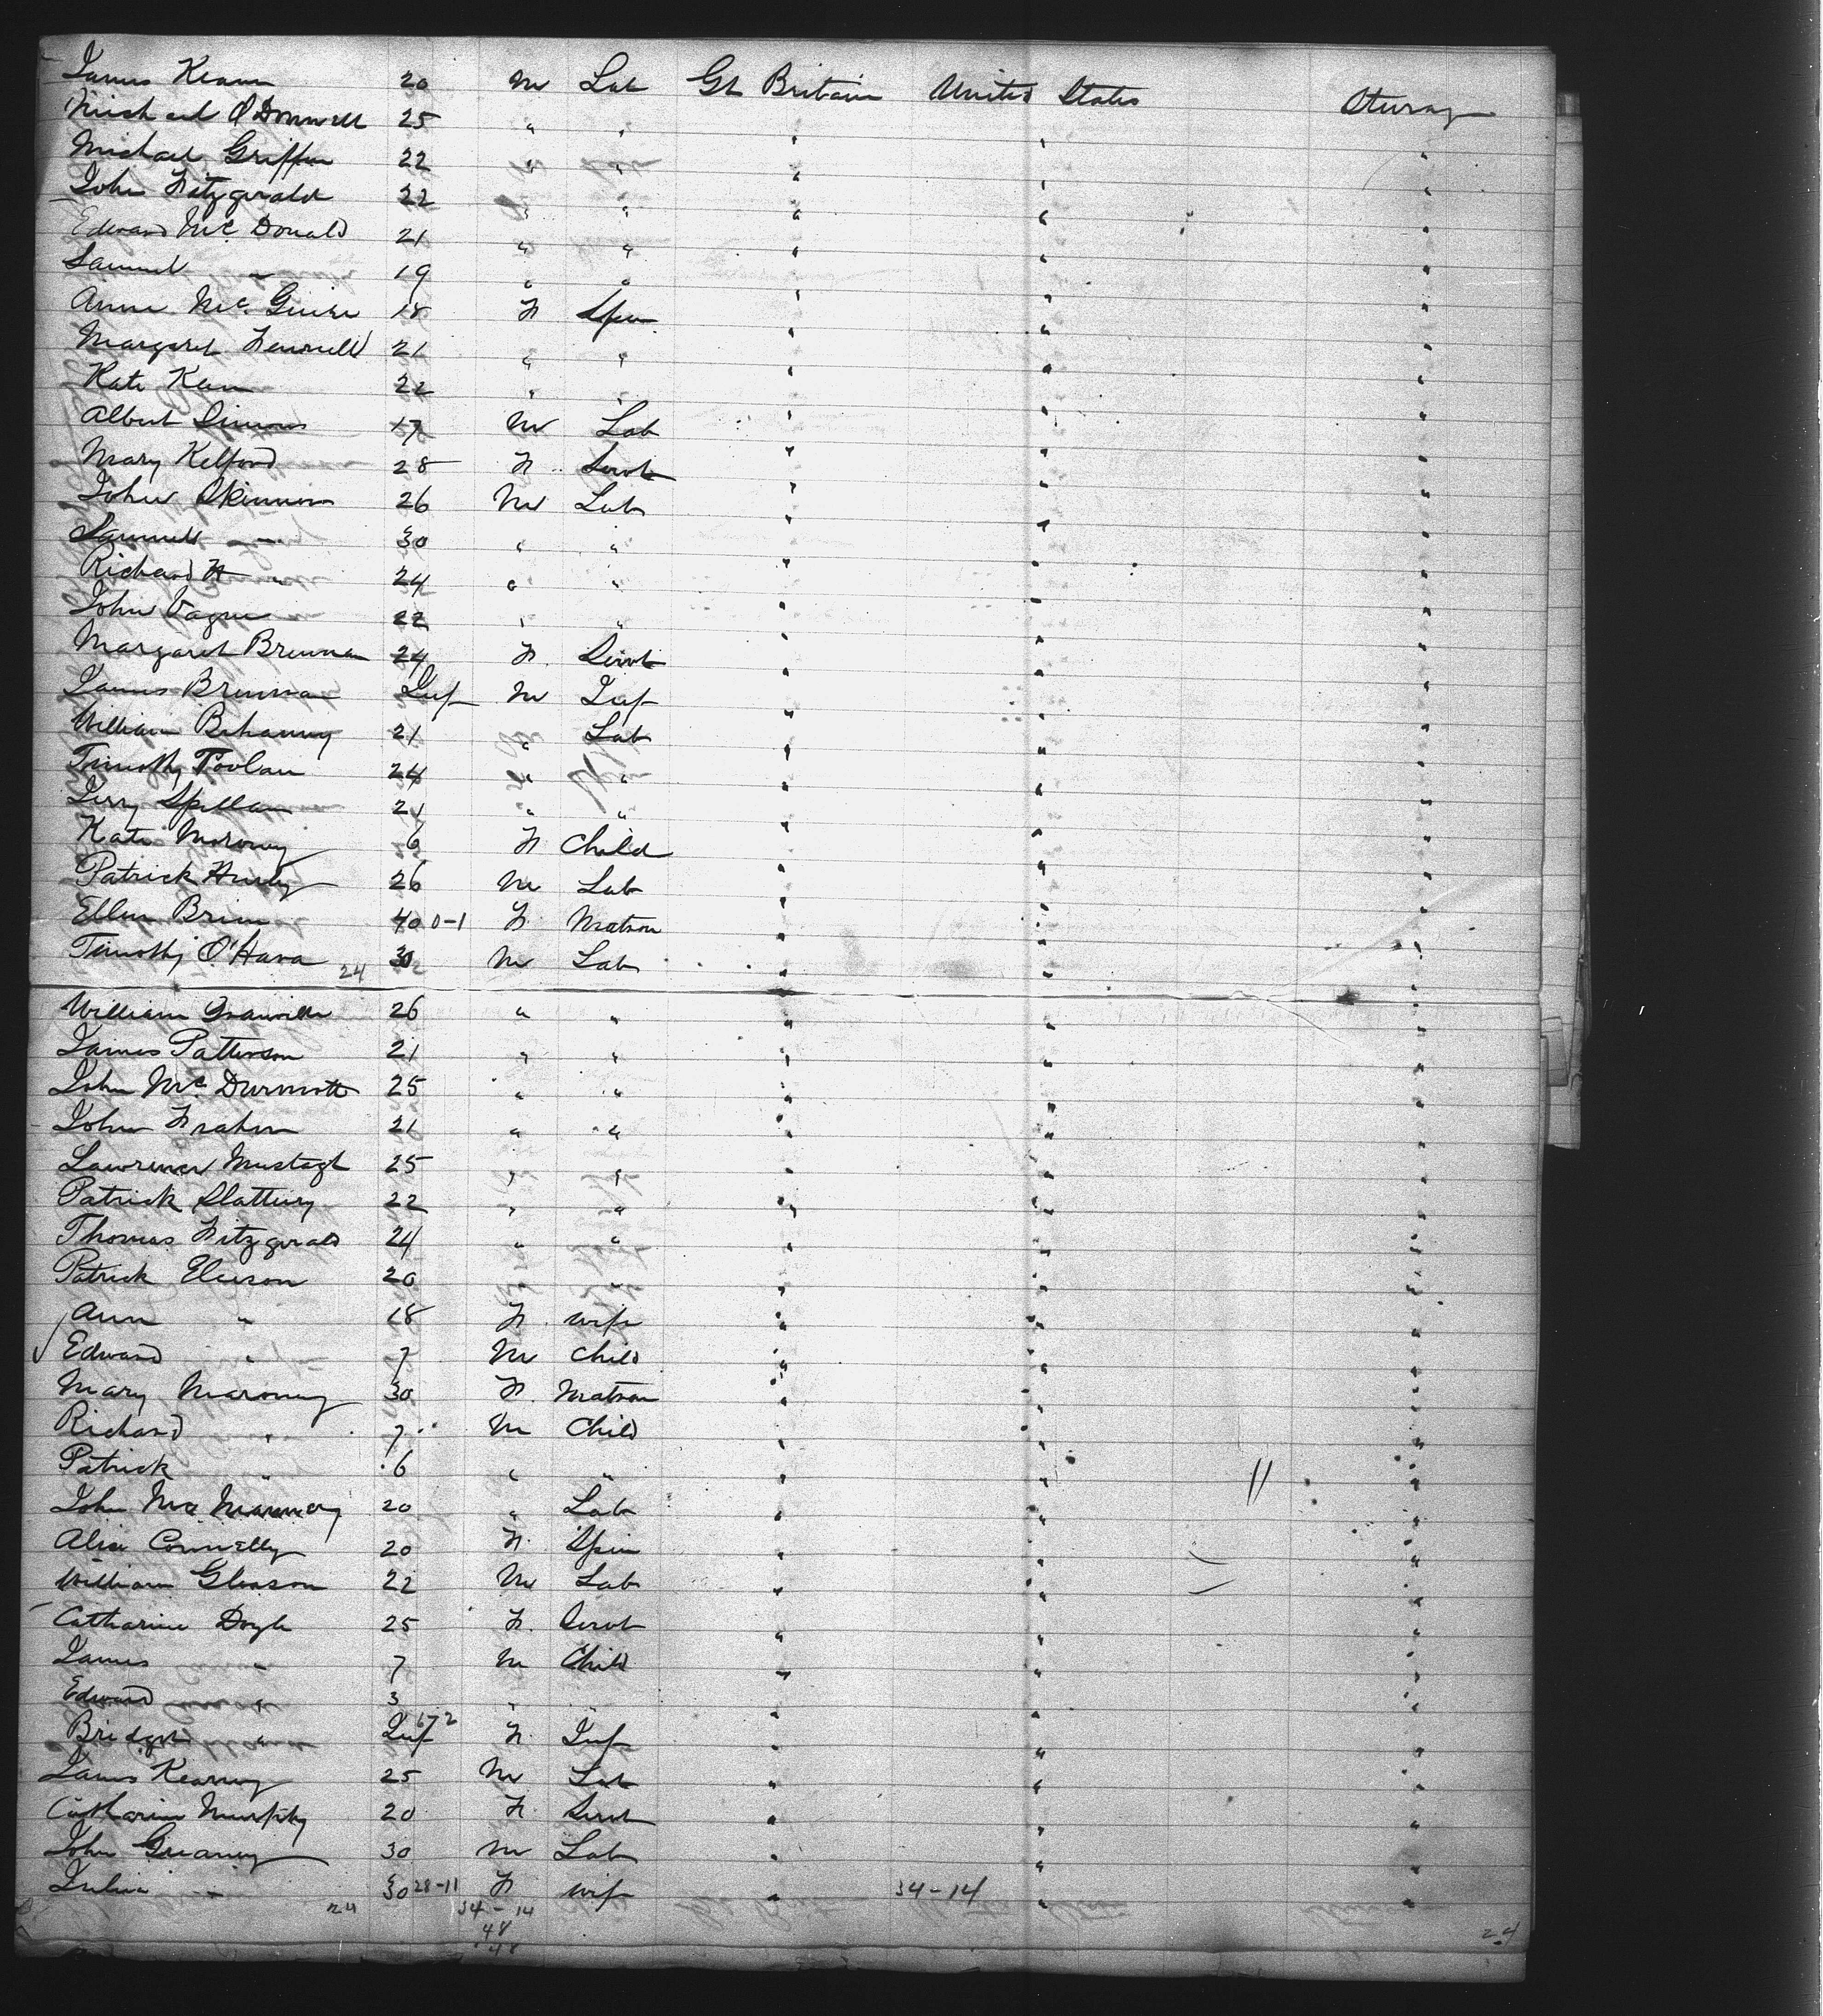 James Keam 20 M Lab Gt Britain United States Steerag
Michael O'Donnell 25 " " " " "
Michael Griffin 22 " " " " "
John Fitzgerald 22 " " " " "
Edward Mc Donald 21 " " " " "
Samuel " 19 " " " " "
Anne Mc Guire 18 F Spin " " "
Margaret Fennell 21 " " " " "
Kate Kean 22 " " " " "
Albert Simons 17 M Lab " " "
Mary Kelford 28 F Servt " " "
John Skinner 26 M Lab " " "
Samuel " 30 " " " " "
Richard H " 24 " " " " "
John Vague 22 " " " " "
Margaret Brennan 24 F Servt " " "
James Brennan Inf M Inf " " "
William Bohanny 21 " Lab " " "
Timothy Toolan 24 " " " " "
Jerry Spillan 21 " " " " "
Kate Moroney 6 F Child " " "
Patrick Hurly 26 M Lab " " "
Ellen Brien 40 0-1 F Matron " " "
Timothy O'Hara 24 30 M Lab " " "
William Granville 26 " " " " "
James Patterson 21 " " " " "
John Mc Dermott 25 " " " " "
John Frahen 21 " " " " "
Lawrence Mustagh 25 " " " " "
Patrick Slattery 22 " " " " "
Thomas Fitzgerald 24 " " " " "
Patrick Eleeson 20 " " " " "
Ann " 18 F wife " " "
Edward " 7 M Child " " "
Mary Maroney 30 F Matron " " "
Richard " 7 M Child " " "
Patrick " 6 " " " " "
John Mc 20 " Lab " " "
Alice Connelly 20 F Spin " " "
William Gleason 22 M Lab " " "
Catharine Doyle 25 F Servt " " "
James " 7 M Child " " "
Edward " 3 " " " " "
Bridget " Inf F Inf " " "
James Kearney 25 M Lab " " "
Catharine Murphy 20 F Servt " " "
John Greaney 30 M Lab " " "
Julia " 30 28-11 F wife " 34-14 " "
24 34-14
48
48
24